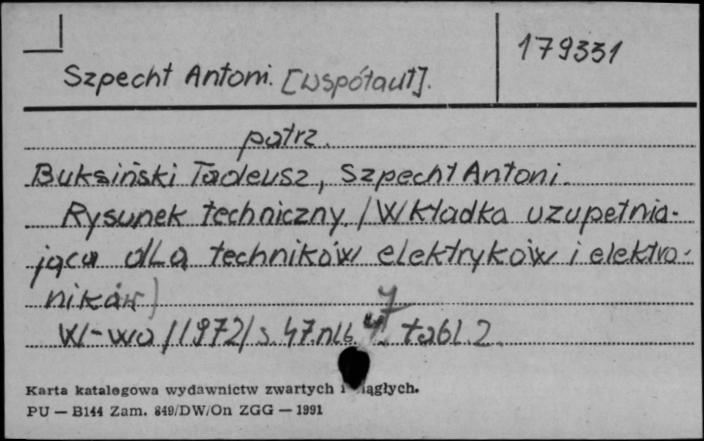 179331
Szpecht Antoni. [współaut].
patrz.
Buksiński Tadeusz, Szpecht Antoni.
Rysunek techniczny. /Wkładka uzupełnia-
jąca dla techników elektryków i elektro-
ników)
W-wa /1972/ s. 47 nlb. tabl. 2.
Karta katalogowa wydawnictw zwartych i ciągłych.
PU — B144 Zam. 849/DW/On ZGG — 1991